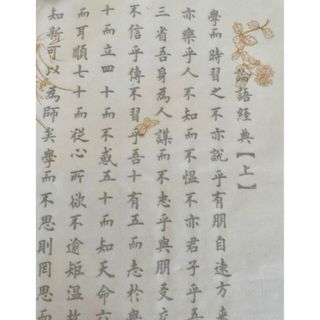 論語經典【上】
學而時習之不亦說乎有朋自遠方來
亦樂乎人不知而不慍不亦君子乎吾
三省吾身為人謀而不忠乎與朋友交
不信乎傳不習乎吾十有五而志於學
十而立四十而不惑五十而知天命六
而耳順七十而從心所欲不逾矩溫故
知新可以為師矣學而不思則罔思而